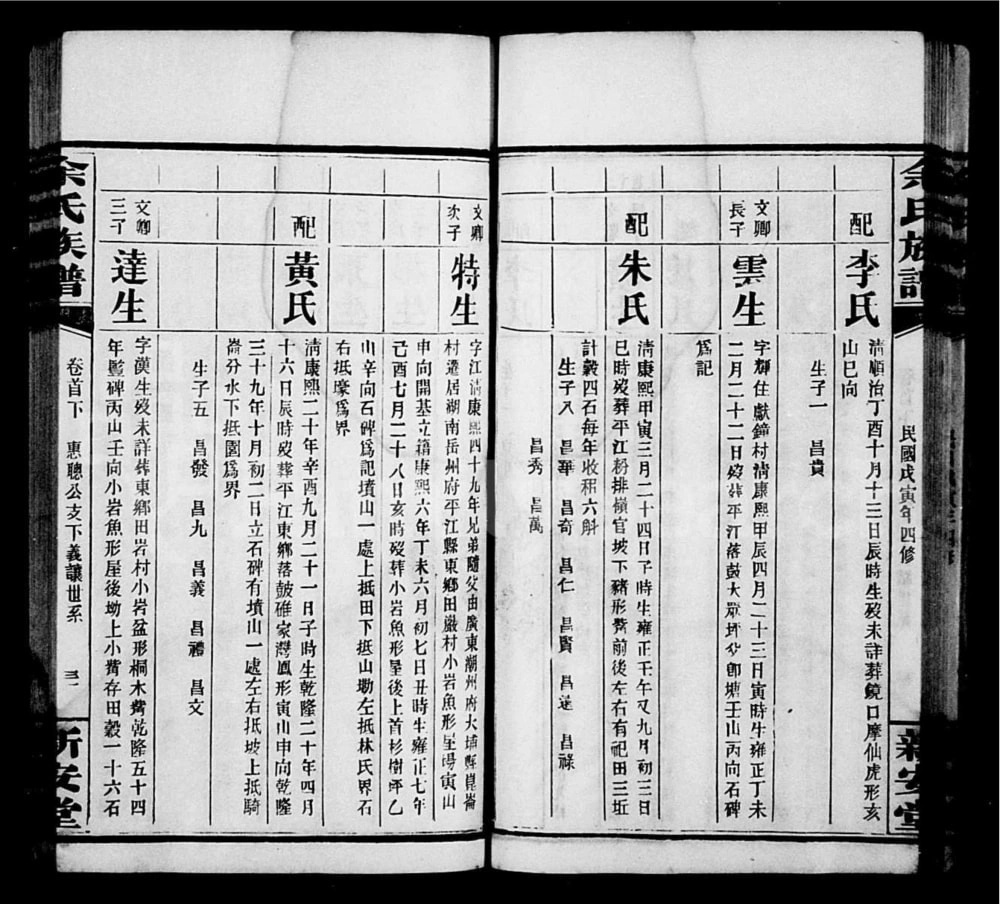 余氏族譜
民國戊寅年四修
新安堂
配
李氏
清順治丁酉十月十三日辰時生歿未詳葬鏡口摩仙虎形亥
山巳向
生子一 昌貴
文卿
長子
雲生
字輝住獻鐘村清康熙甲辰四月二十三日寅時生雍正丁未
二月二十二日歿葬平江落鼓大眾坪分卽塘壬山丙向石碑
為記
配
朱氏
清康熙甲寅三月二十四日子時生雍正壬午又九月初三日
巳時歿葬平江粉排嶺官坡下豬形臍前後左右有祀田三坵
計穀四石每年收租六斛
生子八 昌華 昌奇 昌仁 昌賢 昌達 昌祿
昌秀 昌萬
文卿
次子
特生
字江清康熙四十九年兄弟隨父由廣東潮州府大埔縣崑崙
村遷居湖南岳州府平江縣東鄉田巖村小岩魚形屋場寅山
申向開基立籍康熙六年丁未六月初七日丑時生雍正七年
己酉七月二十八日亥時歿葬小岩魚形屋後上首杉樹坪乙
山辛向石碑為記墳山一處上抵田下抵山坳左抵林氏界石
右抵壕為界
配
黃氏
清康熙二十年辛酉九月二十一日子時生乾隆二十年四月
十六日辰時歿葬平江東鄉落鼓碓家灣鳳形寅山申向乾隆
三十九年十月初二日立石碑有墳山一處左右抵坡上抵騎
崙分水下抵園為界
生子五 昌發 昌九 昌義 昌禮 昌文
文卿
三子
達生
字漢生歿未詳葬東鄉田岩村小岩盆形桐木窩乾隆五十四
年豎碑丙山壬向小岩魚形屋後坳上小窩存田穀一十六石
余氏族譜
卷首下 惠聰公支下義讓世系
新安堂